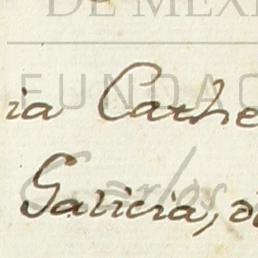 DE MÉXI
FUNDAC
ia Cathe
Carlos
Galicia, d